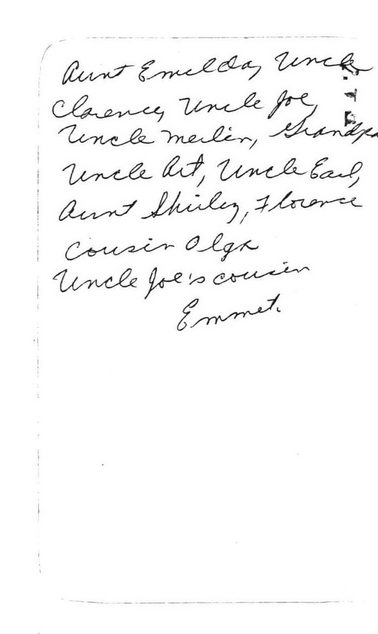 Aunt Emelda, Uncle
Clarence, Uncle Joe,
Uncle Merlin, Grandpa
Uncle Art, Uncle Earl,
Aunt Shirley, Florence
Cousin Olga
Uncle Joe's cousin
Emmet.